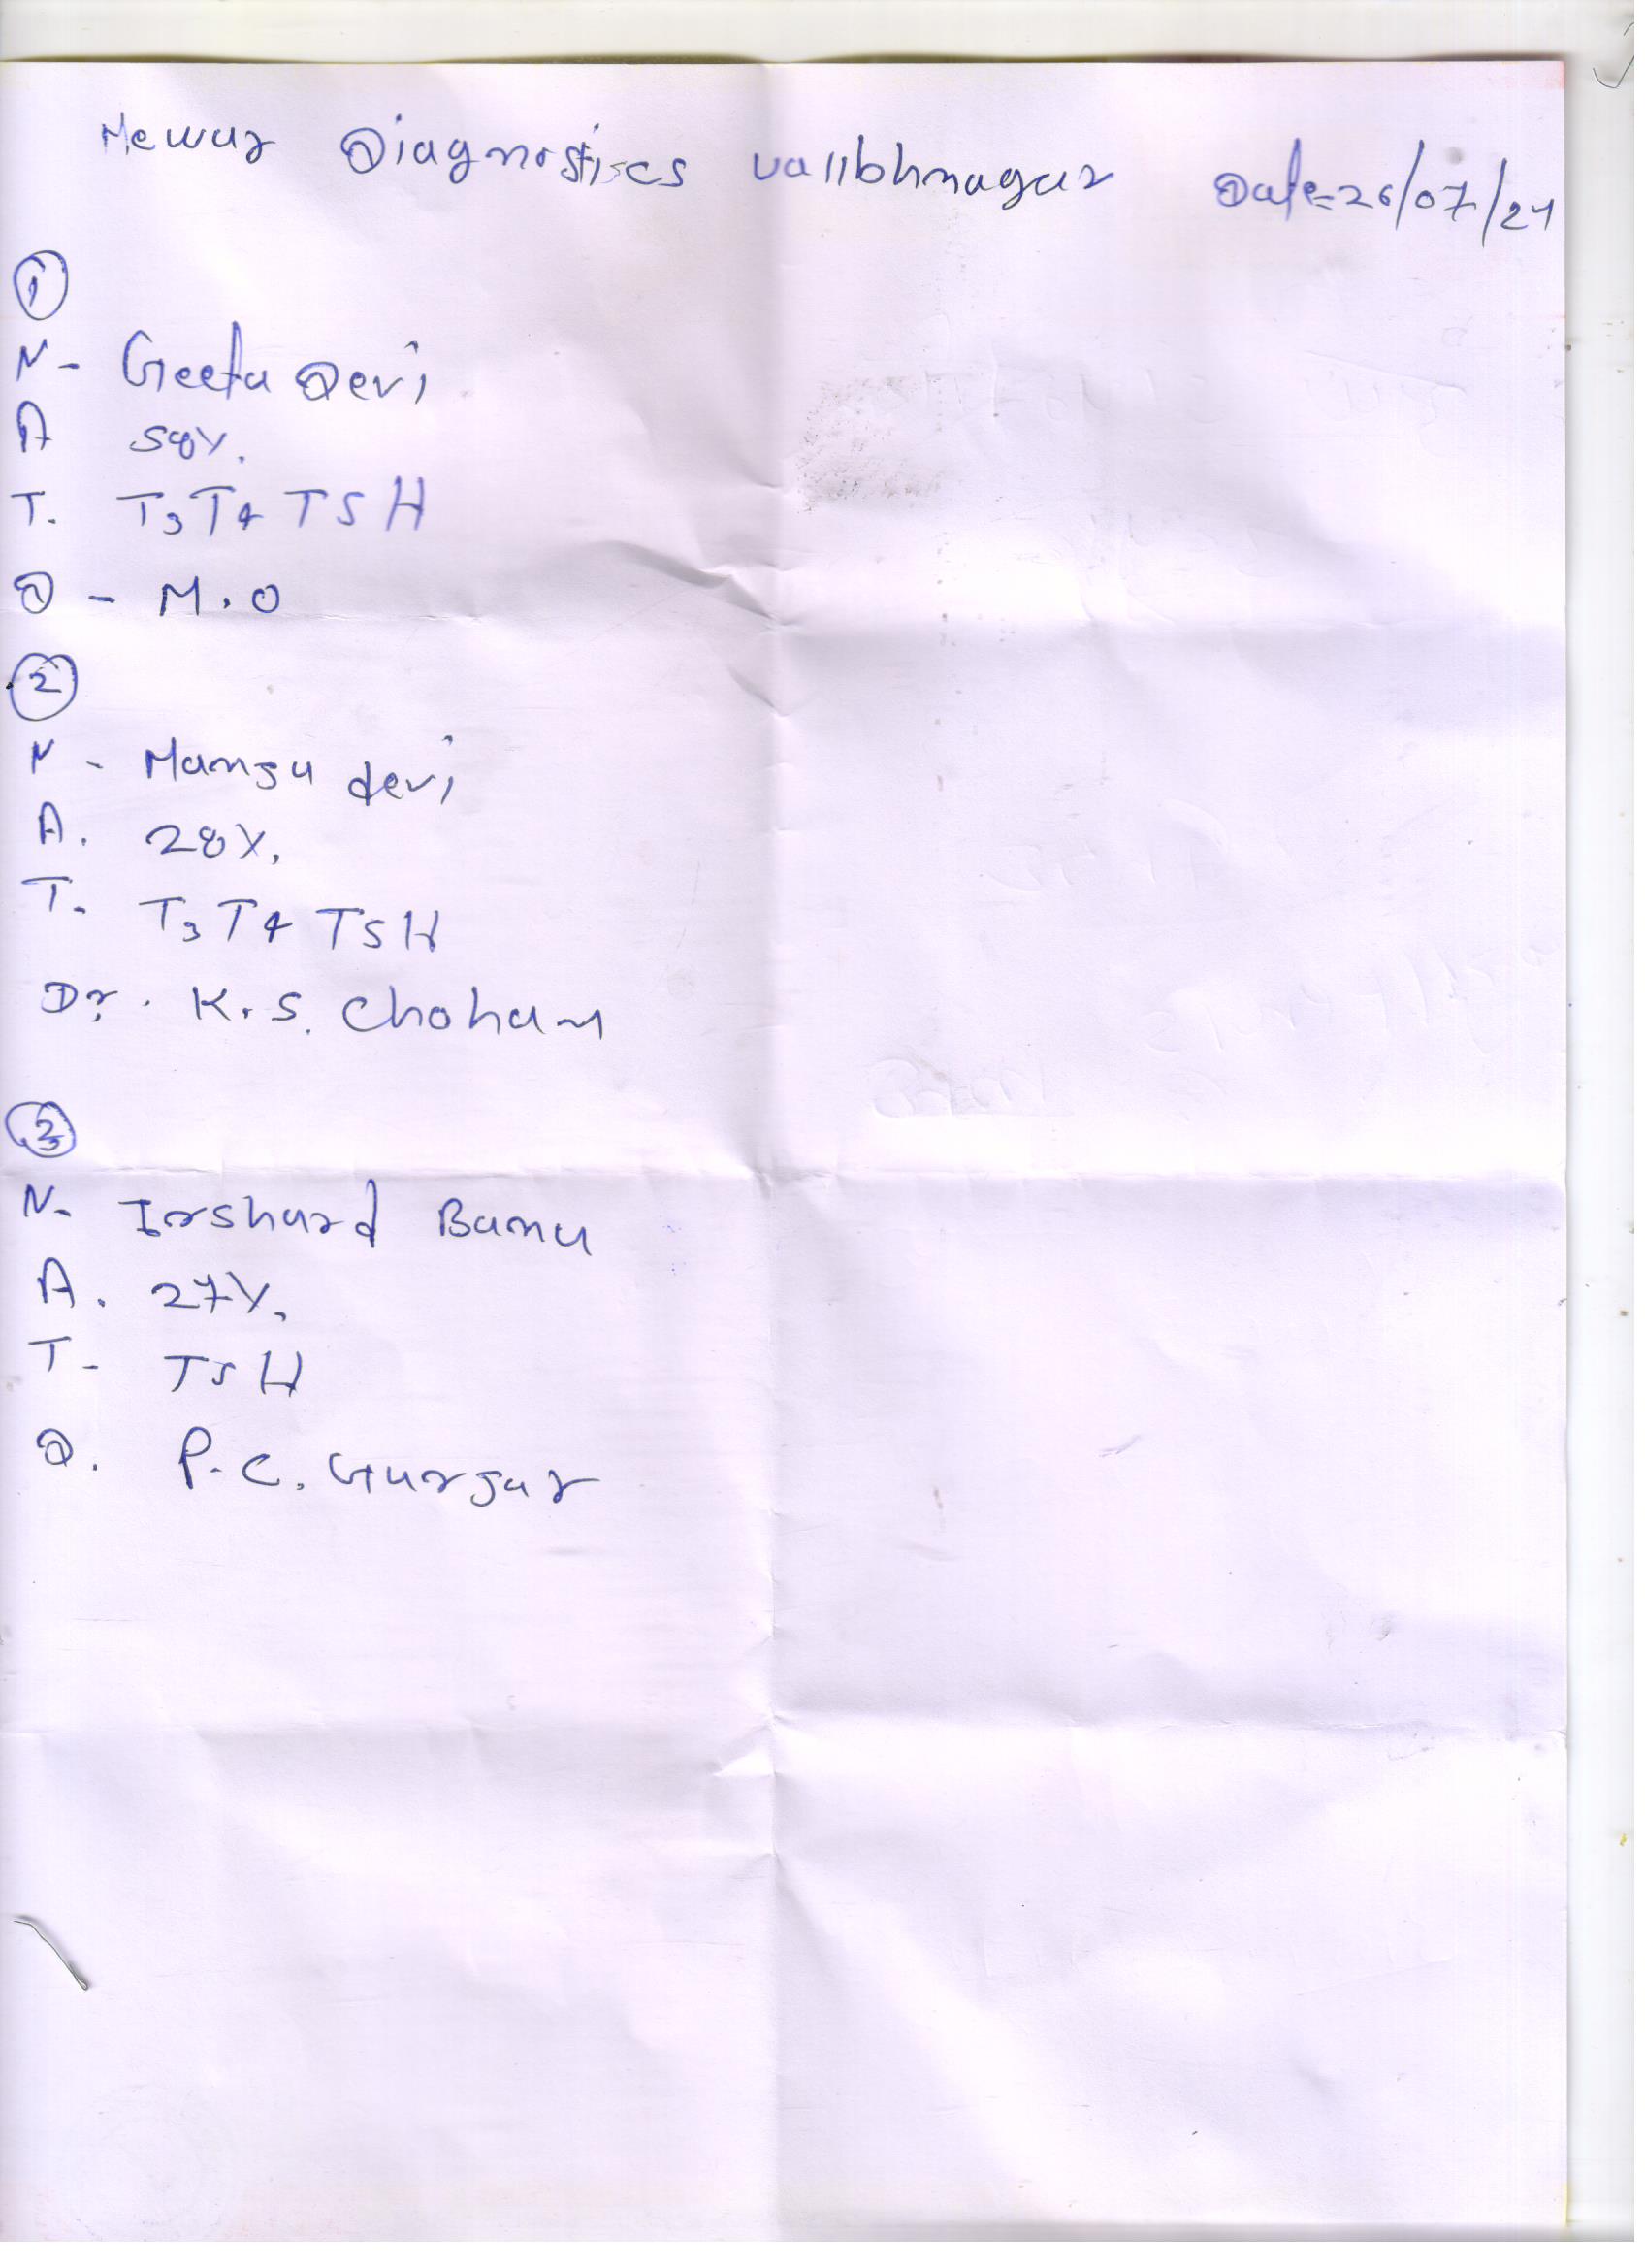 Mewar Diagnostiscs vallbhnagar Date=26/07/24
1
N - Geeta Devi
A 58Y.
T. T3 T4 TSH
D - M.O
2
N - Mansu devi
A. 28Y.
T. T3 T4 TSH
Dr. K.S. Chohan
3
N. Irshard Banu
A. 27Y.
T - TSH
D. P.C. Gurjar